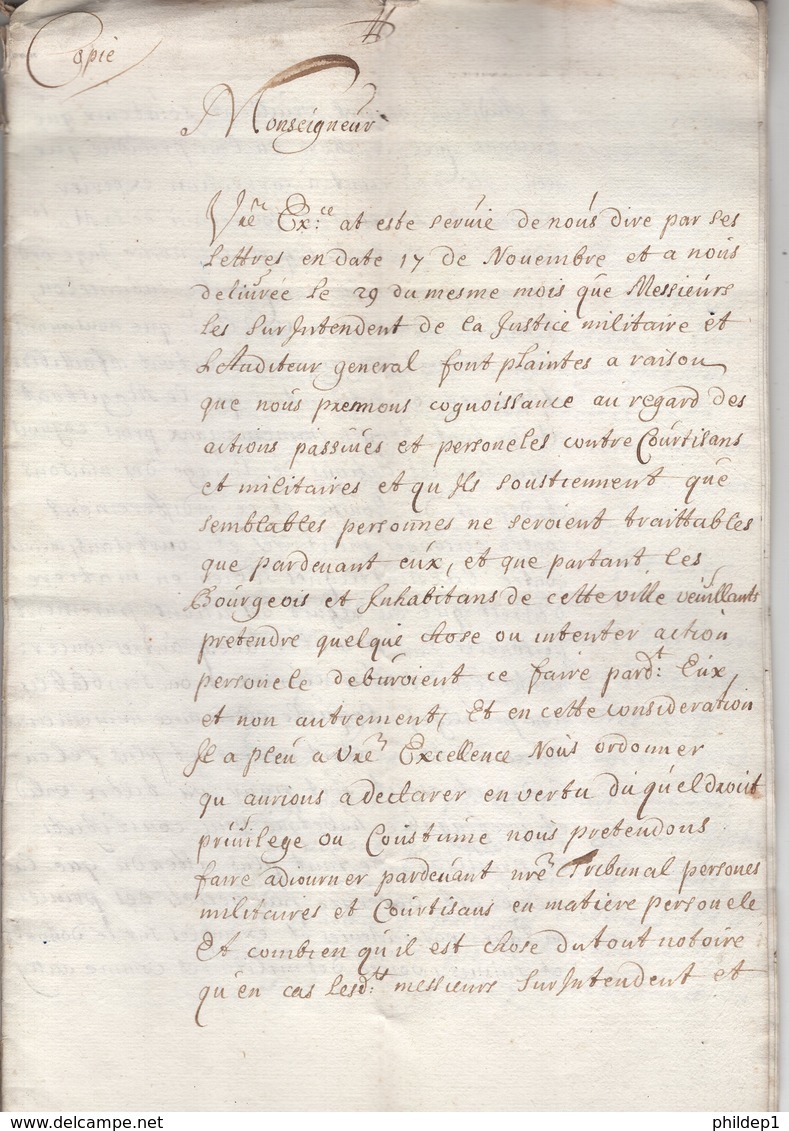 Copie
Monseigneur
Vre Ex:ce at este servie de nous dire par ses
Lettres en date 17 de Novembre et a nous
delivrée le 29 du mesme mois que Messieurs
les SurIntendent de la Justice militaire et
L'Auditeur general font plaintes a raison
que nous prennons cognoissance au regard des
actions passives et personeles contre Courtisans
et militaires et qu Ils soustiennent que
semblables personnes ne seroient traittables
que pardevant eux, et que partant les
Bourgeois et Inhabitans de cette ville veuillants
pretendre quelque chose ou intenter action
personele deburoient ce faire pard:t Eux,
et non autrement, Et en cette consideration
Il a pleu a Vre Excellence Nous ordonner
qu aurions a declarer en vertu du quel droit
privilege ou Coustume nous pretendons
faire adiourner pardevant nre Tribunal persones
militaires et Courtisans en matiere personele
Et combien qu il est chose du tout notoire
qu en cas lesd:ts messieurs SurIntendent et
www.delcampe.net
phildep1